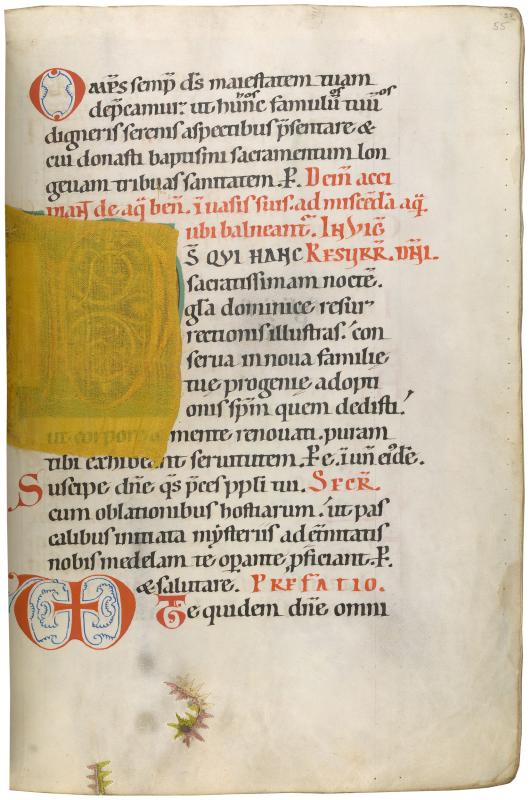 55
Omp̄s semp̄ ds̄ maiestatem tuam
dep̄camur: ut hun̄c famulū tuū
digneris serenis aspectibus p̄sentare &
cui donasti baptismi sacramentum lon
gevam tribuas sanitatem. P̄. Dein̄ acci
de aq̄ ben̄. ī uasis suis. ad miscēda aq̄.
ubi balneant̄. In viḡ
S̄ QUI HANC RESURR̄. DN̄I.
sacratissimam nocte̅.
gl̄a dominice resur
rectionis illustras. con
serua in noua familie
tue progenie adopti
onis sp̄m quem dedisti.
ut corpore mente renouati. puram
tibi exhibeant seruitutem. P̄ e. ī un̄ eiд̄e.
Suscipe dn̄e q̄s p̄ces ppl̄i tui. SECR̄.
cum oblationibus hostiarum. ut pas
calibus initiata mẏsteriis ad et̄nitatis
nobis medelam te op̄ante p̄ficiant. P̄.
& salutare. PREFATIO.
Te quidem dn̄e omni